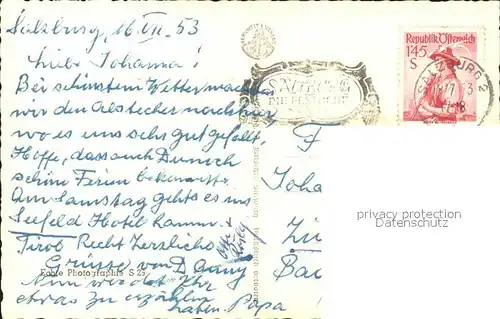 Salzburg, 16.VII. 53
Liebe Johanna!
Bei schönstem Wetter machten
wir den Abstecher nach hier
wo es uns sehr gut gefällt.
Hoffe, dass auch Du noch
schöne Ferien bekommst.
Am Samstag geht's es ins
Seefeld Hotel
Tirol Recht Herzliche
Grüsse von Danny
Nun wird Ihr
etwas zu erzählen
haben. Papa
Echte Photographie S 25
SALZBURG
DIE FESTSPIEL
Republik Österreich
1·45
S
SALZBURG 2
-18
F
Joha
Zü
Ba
privacy protection
Datenschutz